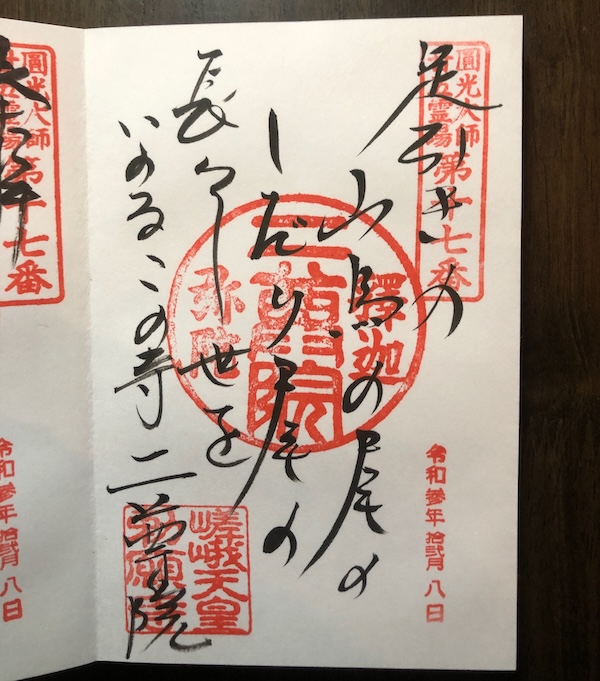 圓光大師
廿五霊場
第十七番
足引きの
山鳥の尾の
しだり尾の
長々し世を
いのるこの寺 二尊院
釋迦
二尊院
弥陀
嵯峨天皇
令和參年 拾弐月 八日
圓光大師
第十七番
令和參年 拾弐月 八日